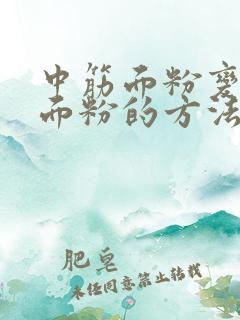 中筋面粉变
面粉的方法
肥皂
未经同意禁止转载